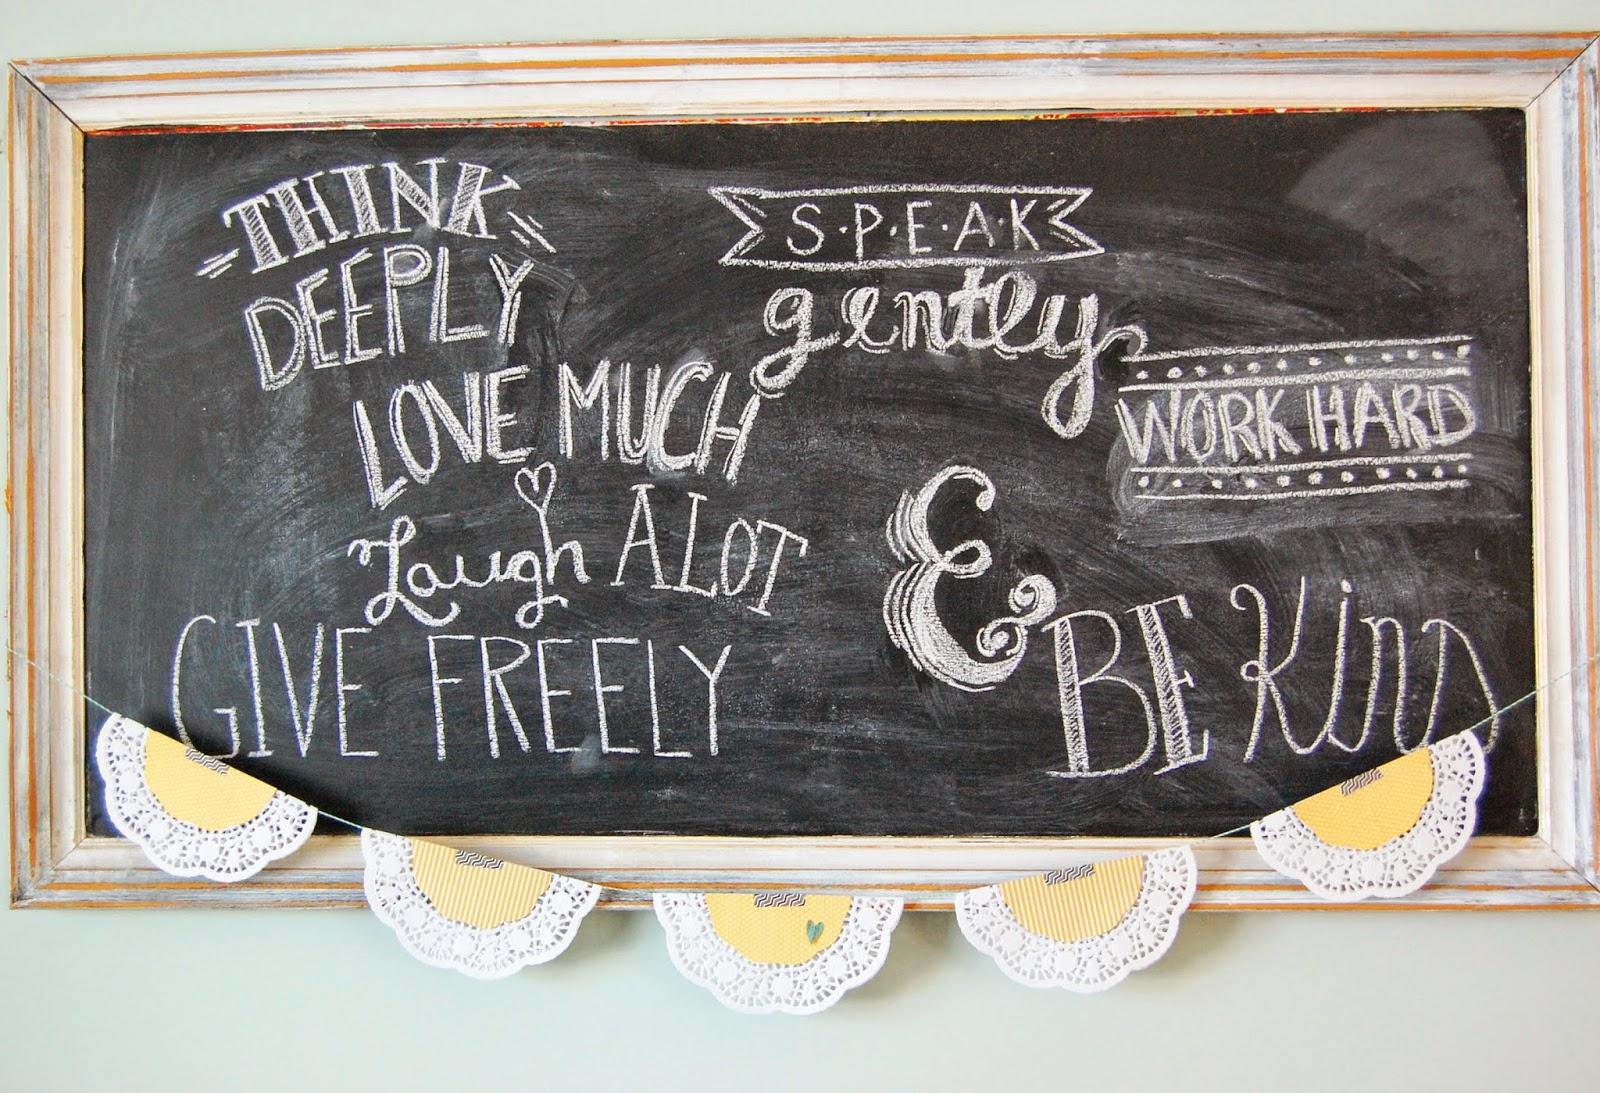 THINK
DEEPLY
LOVE MUCH
Laugh ALOT
GIVE FREELY
S·P·E·A·K
gently
WORK HARD
&
BE KIND